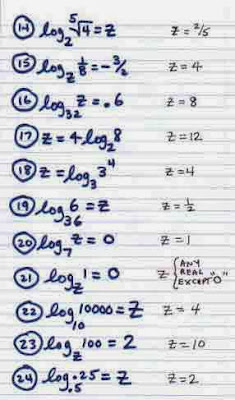 14 log₂ ⁵√4 = z z = 2/5
15 log_z 1/8 = -3/2 z = 4
16 log₃₂ z = .6 z = 8
17 z = 4 log₂ 8 z = 12
18 z = log₃ 3⁴ z = 4
19 log₃₆ 6 = z z = 1/2
20 log₇ z = 0 z = 1
21 log_z 1 = 0 z { ANY REAL EXCEPT "0"
22 log₁₀ 10000 = z z = 4
23 log_z 100 = 2 z = 10
24 log.₅ .25 = z z = 2